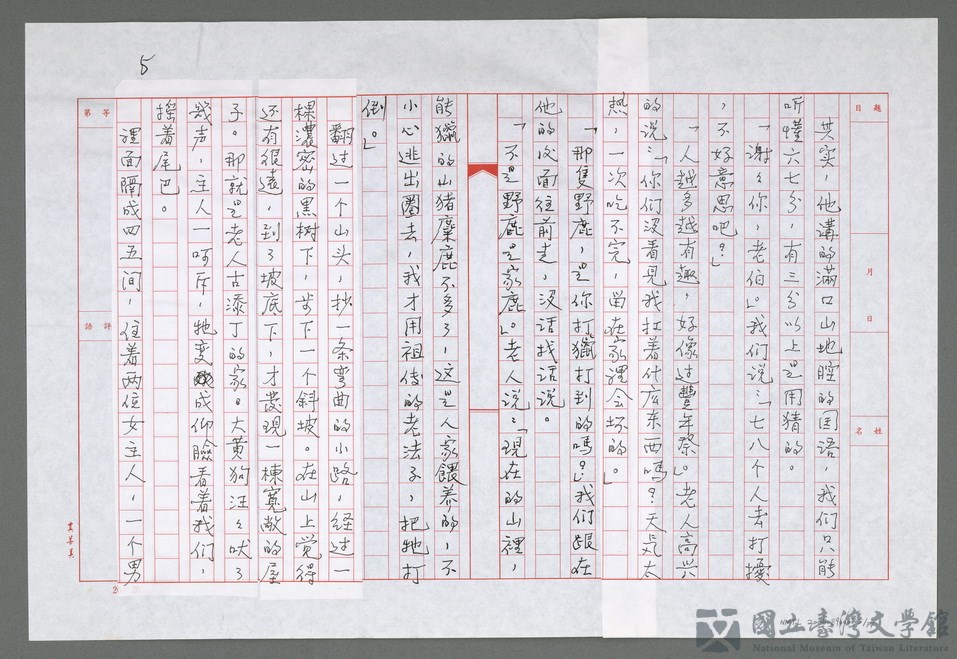 5
題目
月
日
姓名
其实，他講的滿口山地腔的国语，我们只能
听懂六七分，有三分以上是用猜的。
「謝々你，老伯」。我们说：「七八个人去打擾
，不好意思吧？」
「人越多越有趣，好像过豐年祭」。老人高兴
的说：「你们没看見我扛着什広东西吗？天气太
热，一次吃不完，留在家裡会坏的。」
「那隻野鹿，是你打獵打到的嗎？」我们跟在
他的后面往前走，沒话找话说。
「不是野鹿是家鹿」。老人说：「現在的山裡，
能獵的山猪麋鹿不多了，这是人家餵养的，不
小心逃出圈去，我才用祖传的老法子，把牠打
倒。」
翻过一个山头，抄一条弯曲的小路，经过一
棵濃密的黑树下，步下一个斜坡。在山上觉得
还有很遠，到了坡底下，才发現一棟寬敞的屋
子。那就是老人古漆丁的家。大黄狗汪々吠了
幾声，主人一呵斥，牠变成仰臉看着我们，
搖着尾巴。
裡面隔成四五间，住着两位女主人，一个男
第
等
評語
國立臺灣文學館
National Museum of Taiwan Literature